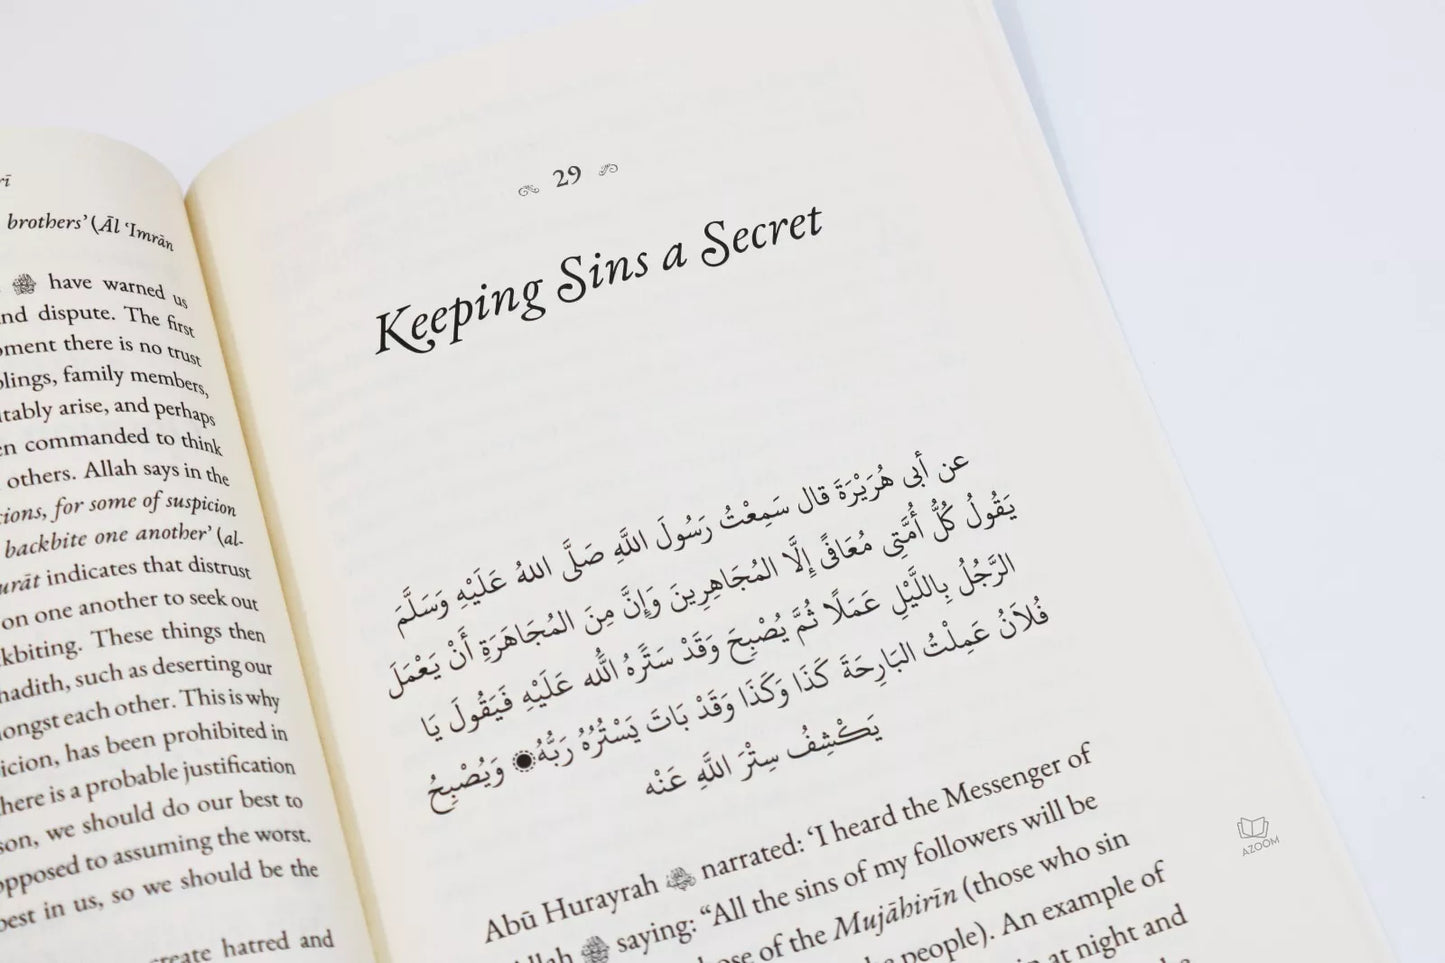 rī
brothers' (Āl 'Imrān
have warned us
and dispute. The first
moment there is no trust
siblings, family members,
inevitably arise, and perhaps
been commanded to think
others. Allah says in the
for some of suspicion
backbite one another' (al-
indicates that distrust
on one another to seek out
backbiting. These things then
hadith, such as deserting our
amongst each other. This is why
has been prohibited in
there is a probable justification
we should do our best to
opposed to assuming the worst.
best in us, so we should be the
create hatred and
29
Keeping Sins a Secret
عن أبى هُرَيْرَةَ قال سَمِعْتُ رَسُولَ اللَّهِ صَلَّى اللهُ عَلَيْهِ وَسَلَّمَ
يَقُولُ كُلُّ أُمَّتِى مُعَافًى إِلَّا المُجَاهِرِينَ وَإِنَّ مِنَ المُجَاهَرَةِ أَنْ يَعْمَلَ
الرَّجُلُ بِاللَّيْلِ عَمَلًا ثُمَّ يُصْبِحَ وَقَدْ سَتَرَهُ اللَّه عَلَيْهِ فَيَقُولَ يَا
فُلاَنُ عَمِلْتُ البَارِحَةَ كَذَا وَكَذَا وَقَدْ بَاتَ يَسْتُرُهُ رَبُّهُ وَيُصْبِحُ
يَكْشِفُ سِتْرَ اللَّهِ عَنْه
Abū Hurayrah narrated: 'I heard the Messenger of
Allah saying: "All the sins of my followers will be
those of the Mujāhirīn (those who sin
people). An example of
at night and
AZOOM